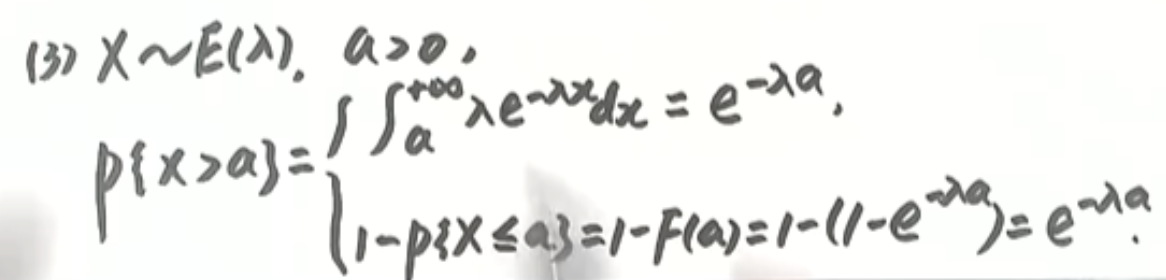 (3) X~E(λ). a>0,
P{X>a}= { ∫_a^{+∞} λe^{-λx}dx = e^{-λa},
1-P{X≤a}=1-F(a)=1-(1-e^{-λa})=e^{-λa}.